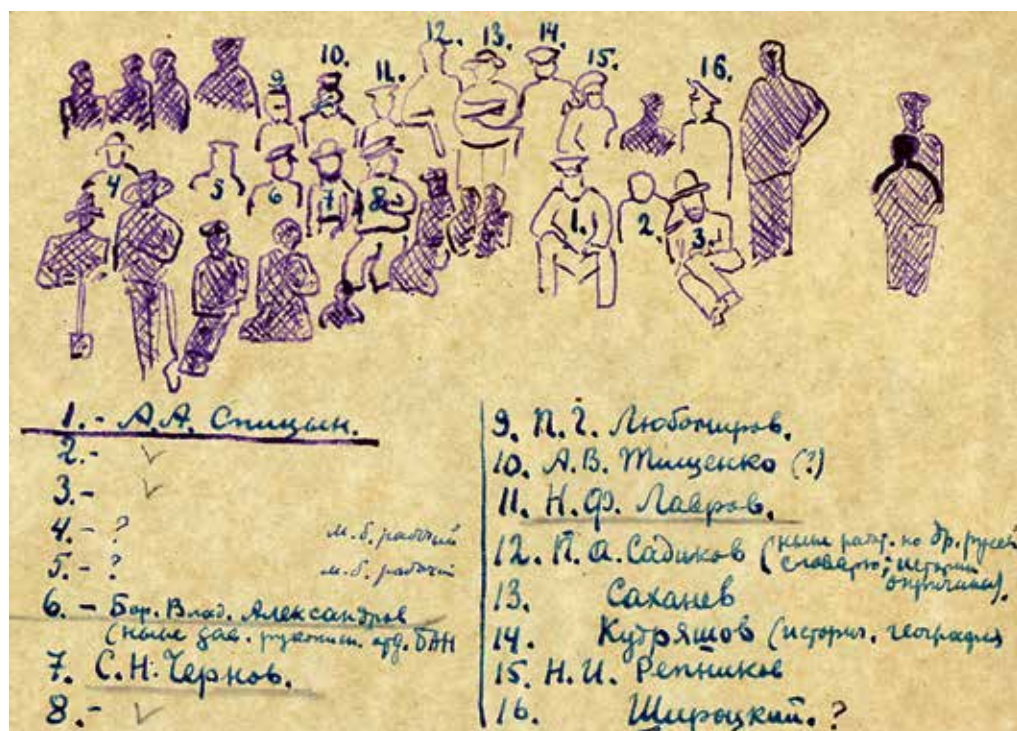 12. 13. 14.
10. 15.
9 11. 16.
4 5 6 7 8 1. 2. 3.
1. - А.А. Спицын.
2. - ✓
3. - ✓
4. - ? м.б. рабочий
5. - ? м.б. рабочий
6. - Бор. Влад. Александров
(ныне зав. рукописн. отд. БАН
7. С.Н. Чернов.
8. - ✓
9. П.Г. Любомиров.
10. А.В. Тищенко (?)
11. Н.Ф. Лавров.
12. П.А. Садиков (ныне раб. по др. русск
словарю; истории
опричнины).
13. Саханев
14. Кудряшов (историч. география
15. Н.И. Репников
16. Широцкий. ?